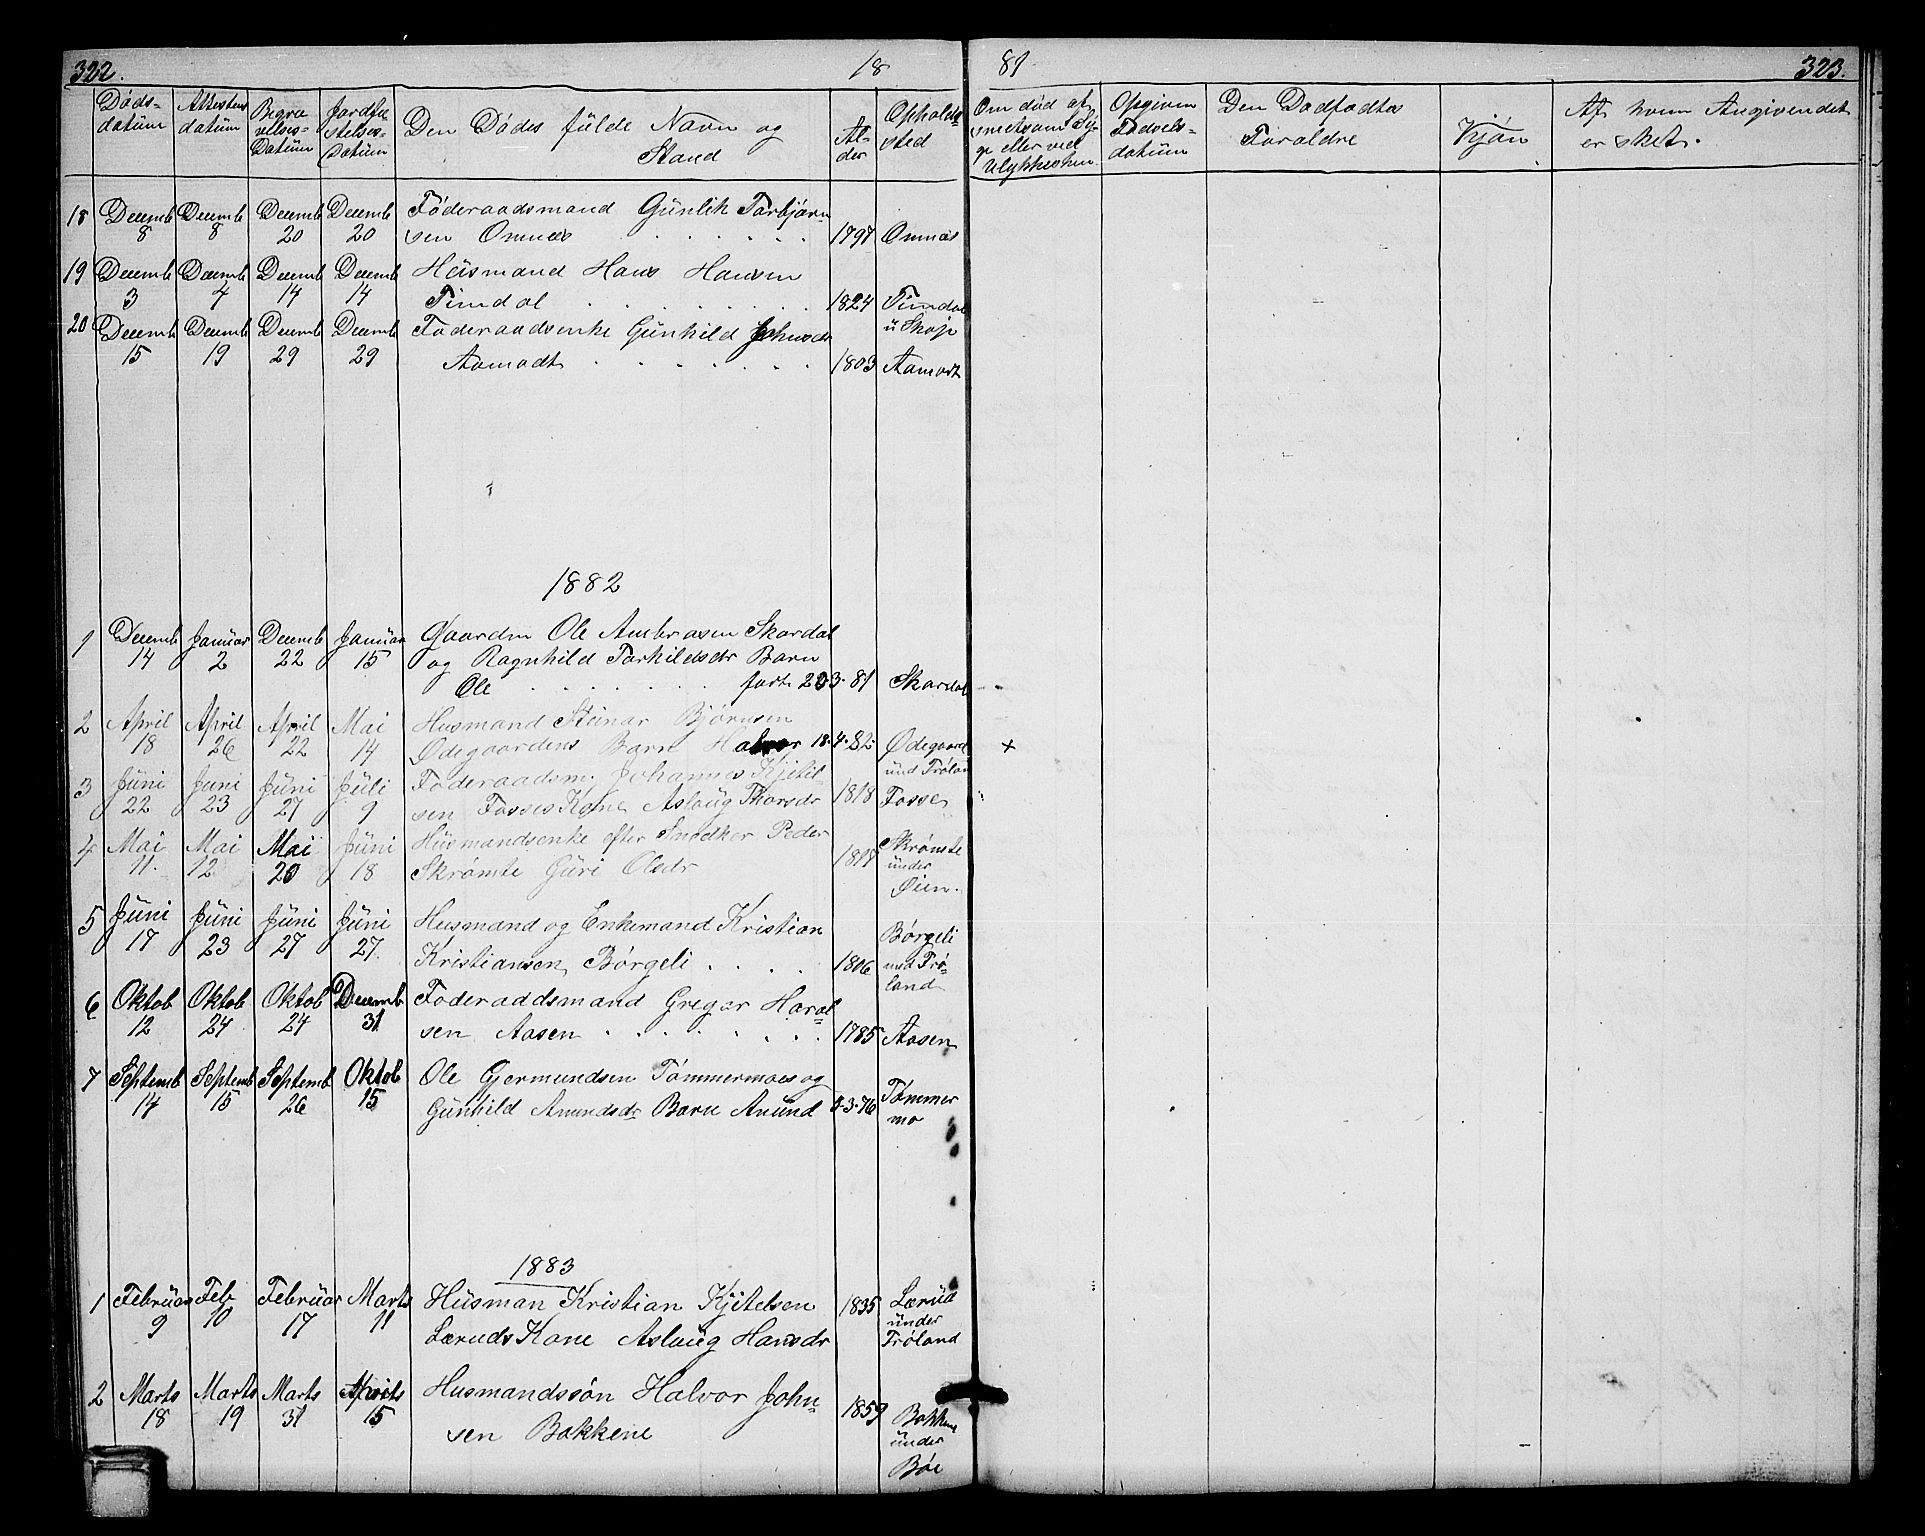 322. 18 81 323.
Døds- datüm | Attestens datüm | Begra velses- Datüm | Jordfæ stelses- datüm | Den Dødes fülde Navn og Stand | Al- der | Opholds- sted | Om død af smetsom Sy- ge eller ved Ulykkeshen. | Opgiven Fødsels- datüm | Den Dødfødtes Foraldre | Kjøn | Af hvem Angivendet er sket.
18 Decemb 8 Decemb 8 Decemb 20 Decemb 20 Føderaadsmand Günlik Torbjørn-
sen Omnæs . . . . . . 1797 Omnæs
19 Decemb 3 Decemb 4 Decemb 14 Decemb 14 Hüsmand Hans Hansen
Timdal . . . . . . . . 1824 Timdal ü Skoje
20 Decemb 15 Decemb 19 Decemb 29 Decemb 29 Føderaadsenke Günhild Johnsdr
Aamodt . . . . . . . 1803 Aamodt
1882
1 Decemb 14 Januar 2 Decemb 22 Januar 15 Gaardm Ole Ambrosen Skordal
og Ragnhild Torkildsdr Barn
Ole . . . . . . . født 203.81 Skordal
2 April 18 April 26 April 22 Mai 14 Husmand Steinar Bjørnsen
Ødegaardens Barn Halvor 18.4.82. Ødegaard und Frøland +
3 Jüni 22 Juni 23 Jüni 27 Jüli 9 Foderaadsm. Johannes Kjitil-
sen Fosses Kone Aslaüg Thorsdr 1818 Fosse
4 Mai 11. Mai 12 Mai 20 Jüni 18 Hüsmandsenke efter Snedker Peder
Skrømte Güri Olsdr 1817 Skrømte ünder Øien.
5 Jüni 17 Jüni 23 Jüni 27 Jüni 27. Husmand og Enkemand Kristian
Kristiansen Børgeli . . . . 1806 Børgeli und Frø- land
6 Oktob 12 Oktob 24 Oktob 24 Decemb 31 Foderaadsmand Gregar Haral-
sen Aasen . . . . . . . 1785 Aasen
7 Septemb 14 Septemb 15 Septemb 26 Oktob 15 Ole Gjermundsen Tømmermoes og
Günhild Anundsdr Barn Anünd 5.3.76 Tømmer mo
1883
1 Februar 9 Feb 10 Februar 17 Marts 11 Hüsman Kristian Kjitelsen
Læruds Kone Aslaüg Hansdr 1835 Lærüd ünder Frøland
2 Marts 18 Marts 19 Marts 31 15 Husmandssøn Halvor John-
sen Bakkene 1859 Bakkene ünder Bøe